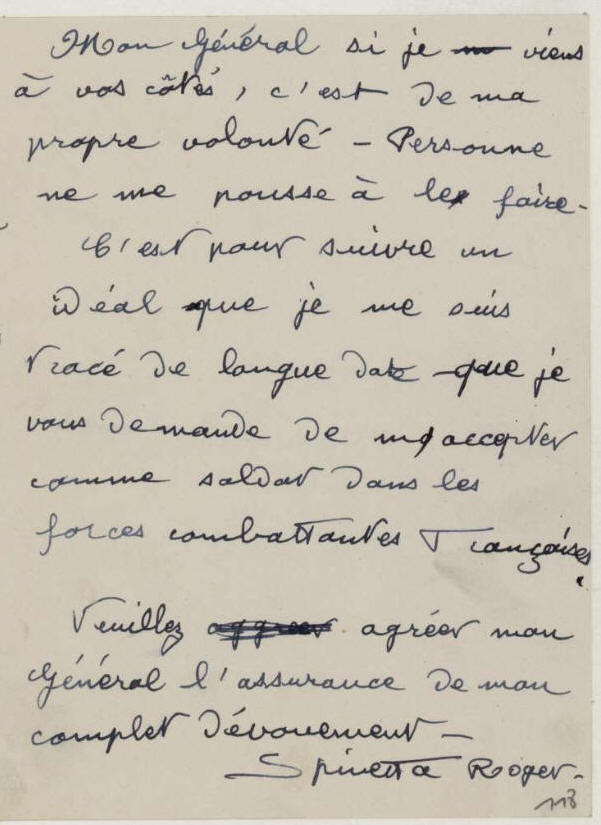 Mon Général si je viens
à vos côtés, c'est de ma
propre volonté - Personne
ne me pousse à le faire -
C'est pour suivre un
idéal que je me suis
tracé de longue date que je
vous demande de m'accepter
comme soldat dans les
forces combattantes Françaises.
Veuillez aggreer agréer mon
Général l'assurance de mon
complet dévouement -
Spinetta Roger -
113